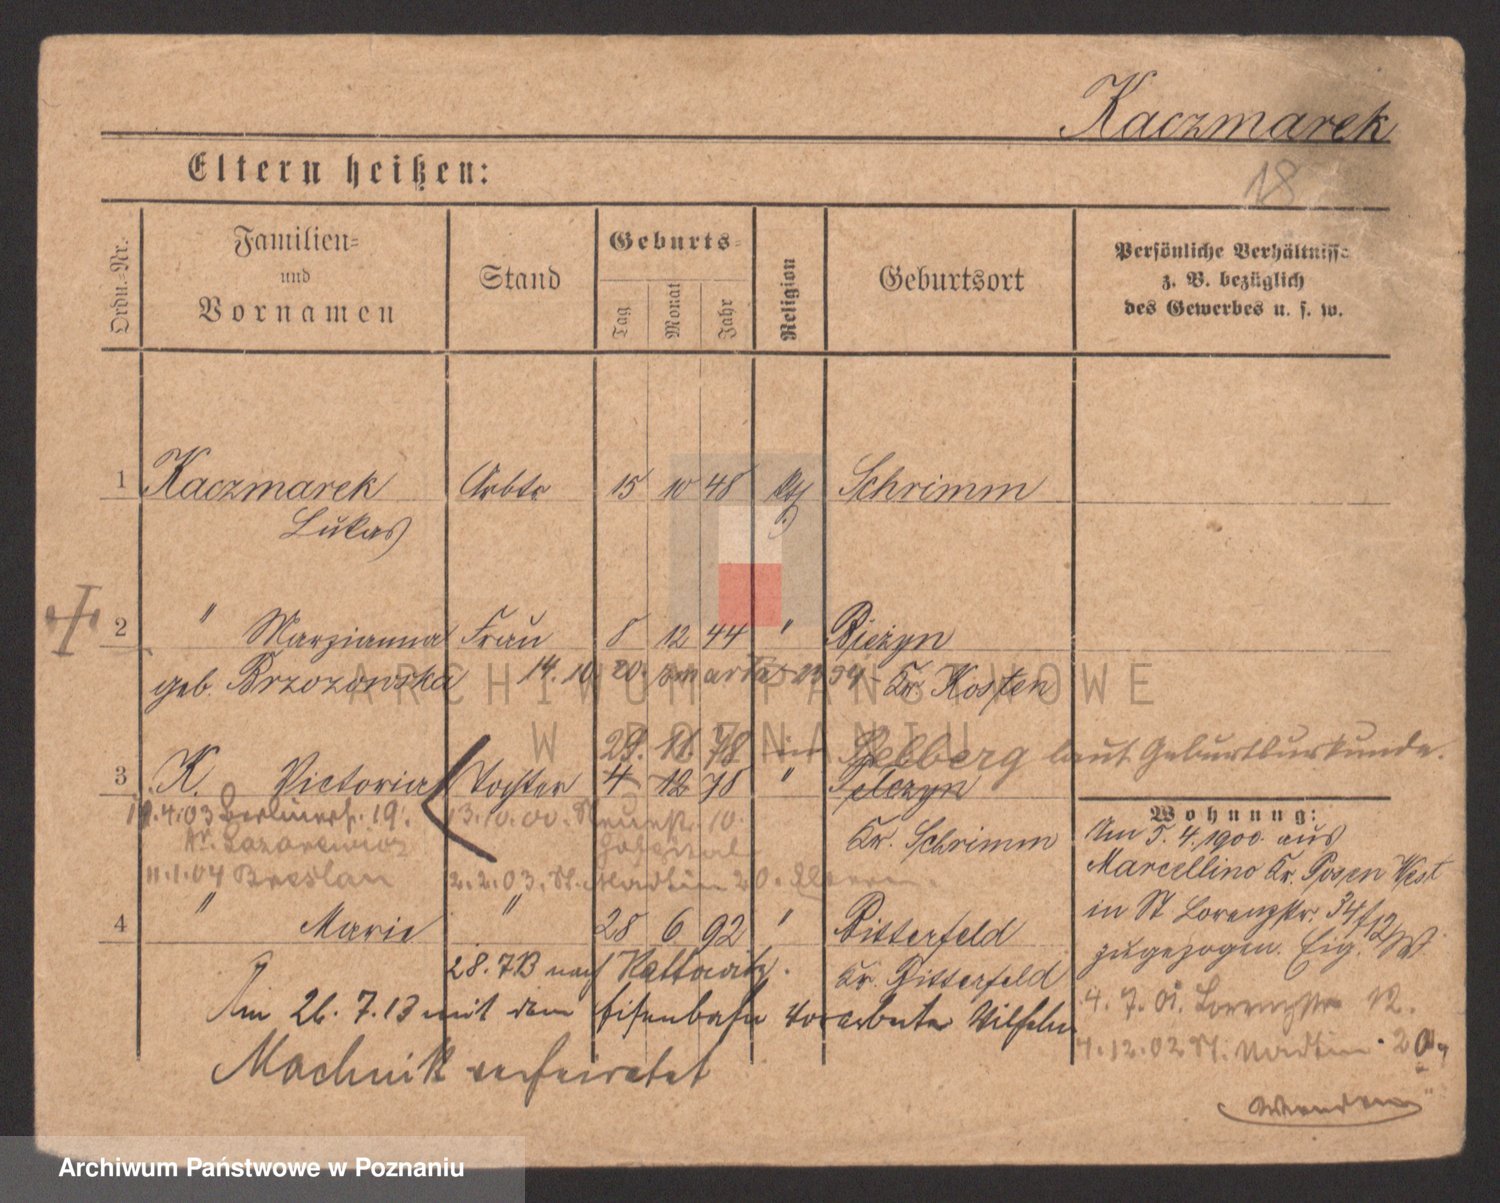 Kaczmarek
18
Eltern heißen:
Ordn.-Nr.
Familien-
und
Vornamen
Stand
Geburts-
Tag
Monat
Jahr
Religion
Geburtsort
Persönliche Verhältnisse
z. B. bezüglich
des Gewerbes u. s. w.
1 Kaczmarek Arbtr 15 10 48 Schrimm
Lukas
2 " Marzianna Frau 8 12 44 " Bieżyn
geb. Brzozowska 14.10.20. zmarła Kr. Kosten
29. 11. 78 in Selberg laut Geburtsurkunde.
3 K. Victoria Tochter 4 12 78 "
Kr. Schrimm
19.4.03 Berlinerstr. 19. 13.10.00. 10.
Lazarewicz Hospital
11.1.04 Breslau 2.2.03. St. Martin 20. Eltern.
4 " Marie " 28 6 92 " Bitterfeld
28.7.13 nach Kattowitz. Kr. Bitterfeld
Am 26.7.13 mit dem Eisenbahn Vorarbeiter Wilhelm
Machnik verheiratet
Wohnung:
Am 5.4.1900 aus
Marcellino Kr. Posen West
in St Lorenzstr. 34/12
zugezogen. Eig. W.
4.7.01. Lorenzstr 12.
4.12.02 St. Martin 20
Wenden
ARCHIWUM PAŃSTWOWE
W POZNANIU
Archiwum Państwowe w Poznaniu